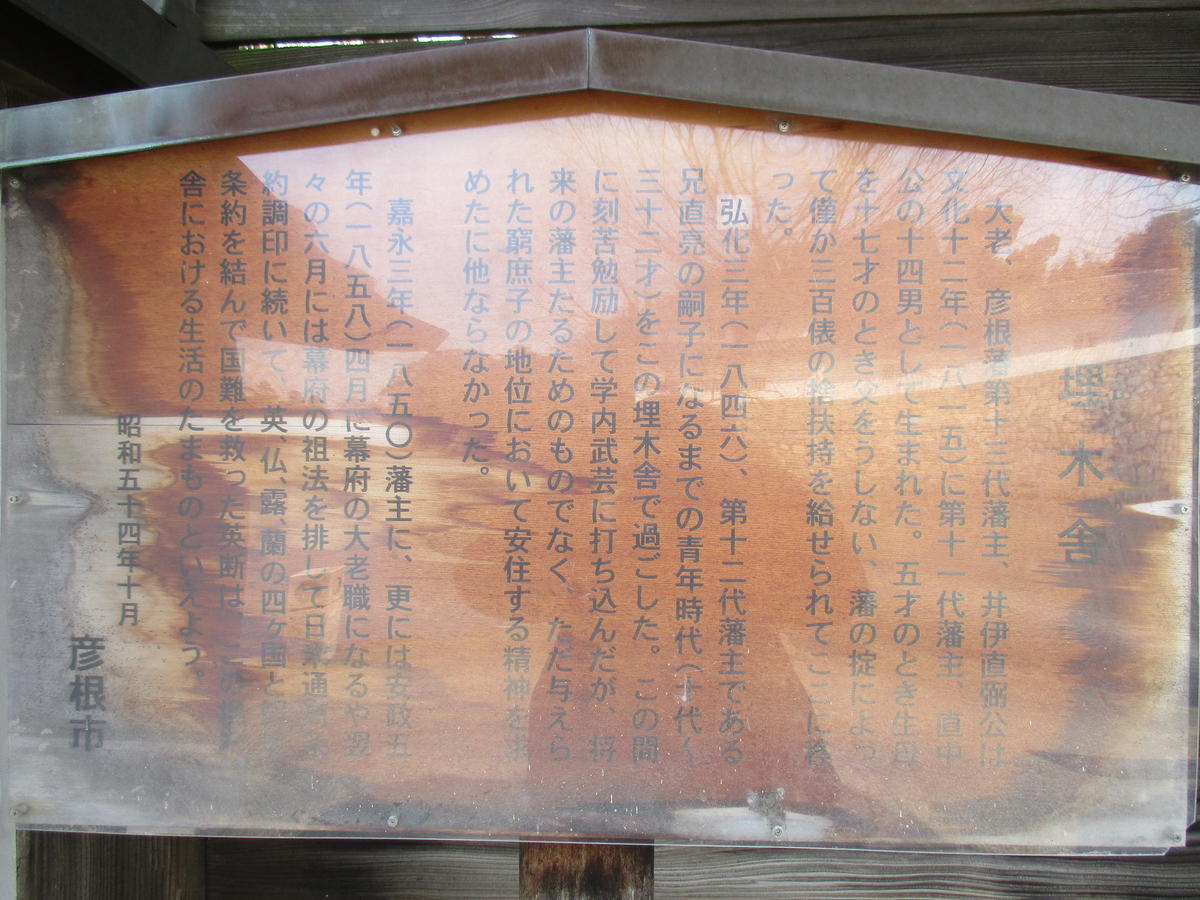 埋木舎
大老、彦根藩第十三代藩主、井伊直弼公は
文化十二年(一八一五)に第十一代藩主、直中
公の十四男として生まれた。五才のとき生母
を十七才のとき父をうしない、藩の掟によっ
て僅か三百俵の捨扶持を給せられてここに移
った。
弘化三年(一八四六)、第十二代藩主である
兄直亮の嗣子になるまでの青年時代(十代〜
三十二才)をこの埋木舎で過ごした。この間
に刻苦勉励して学内武芸に打ち込んだが、将
来の藩主たるためのものでなく、ただ与えら
れた窮庶子の地位において安住する精神を求
めたに他ならなかった。
嘉永三年(一八五〇)藩主に、更には安政五
年(一八五八)四月に幕府の大老職になるや翌
々の六月には幕府の祖法を排して日米通商条
約調印に続いて、英、仏、露、蘭の四ケ国と
条約を結んで国難を救った英断は、この
舎における生活のたまものといえよう。
昭和五十四年十月
彦根市